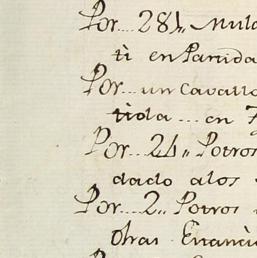 Por... 281,, Mula
ti en Partida
Por... un Cavallo
tiola... en
Por... 24,, Potros
dado alos
Por... 2,, Potros
otras
Por